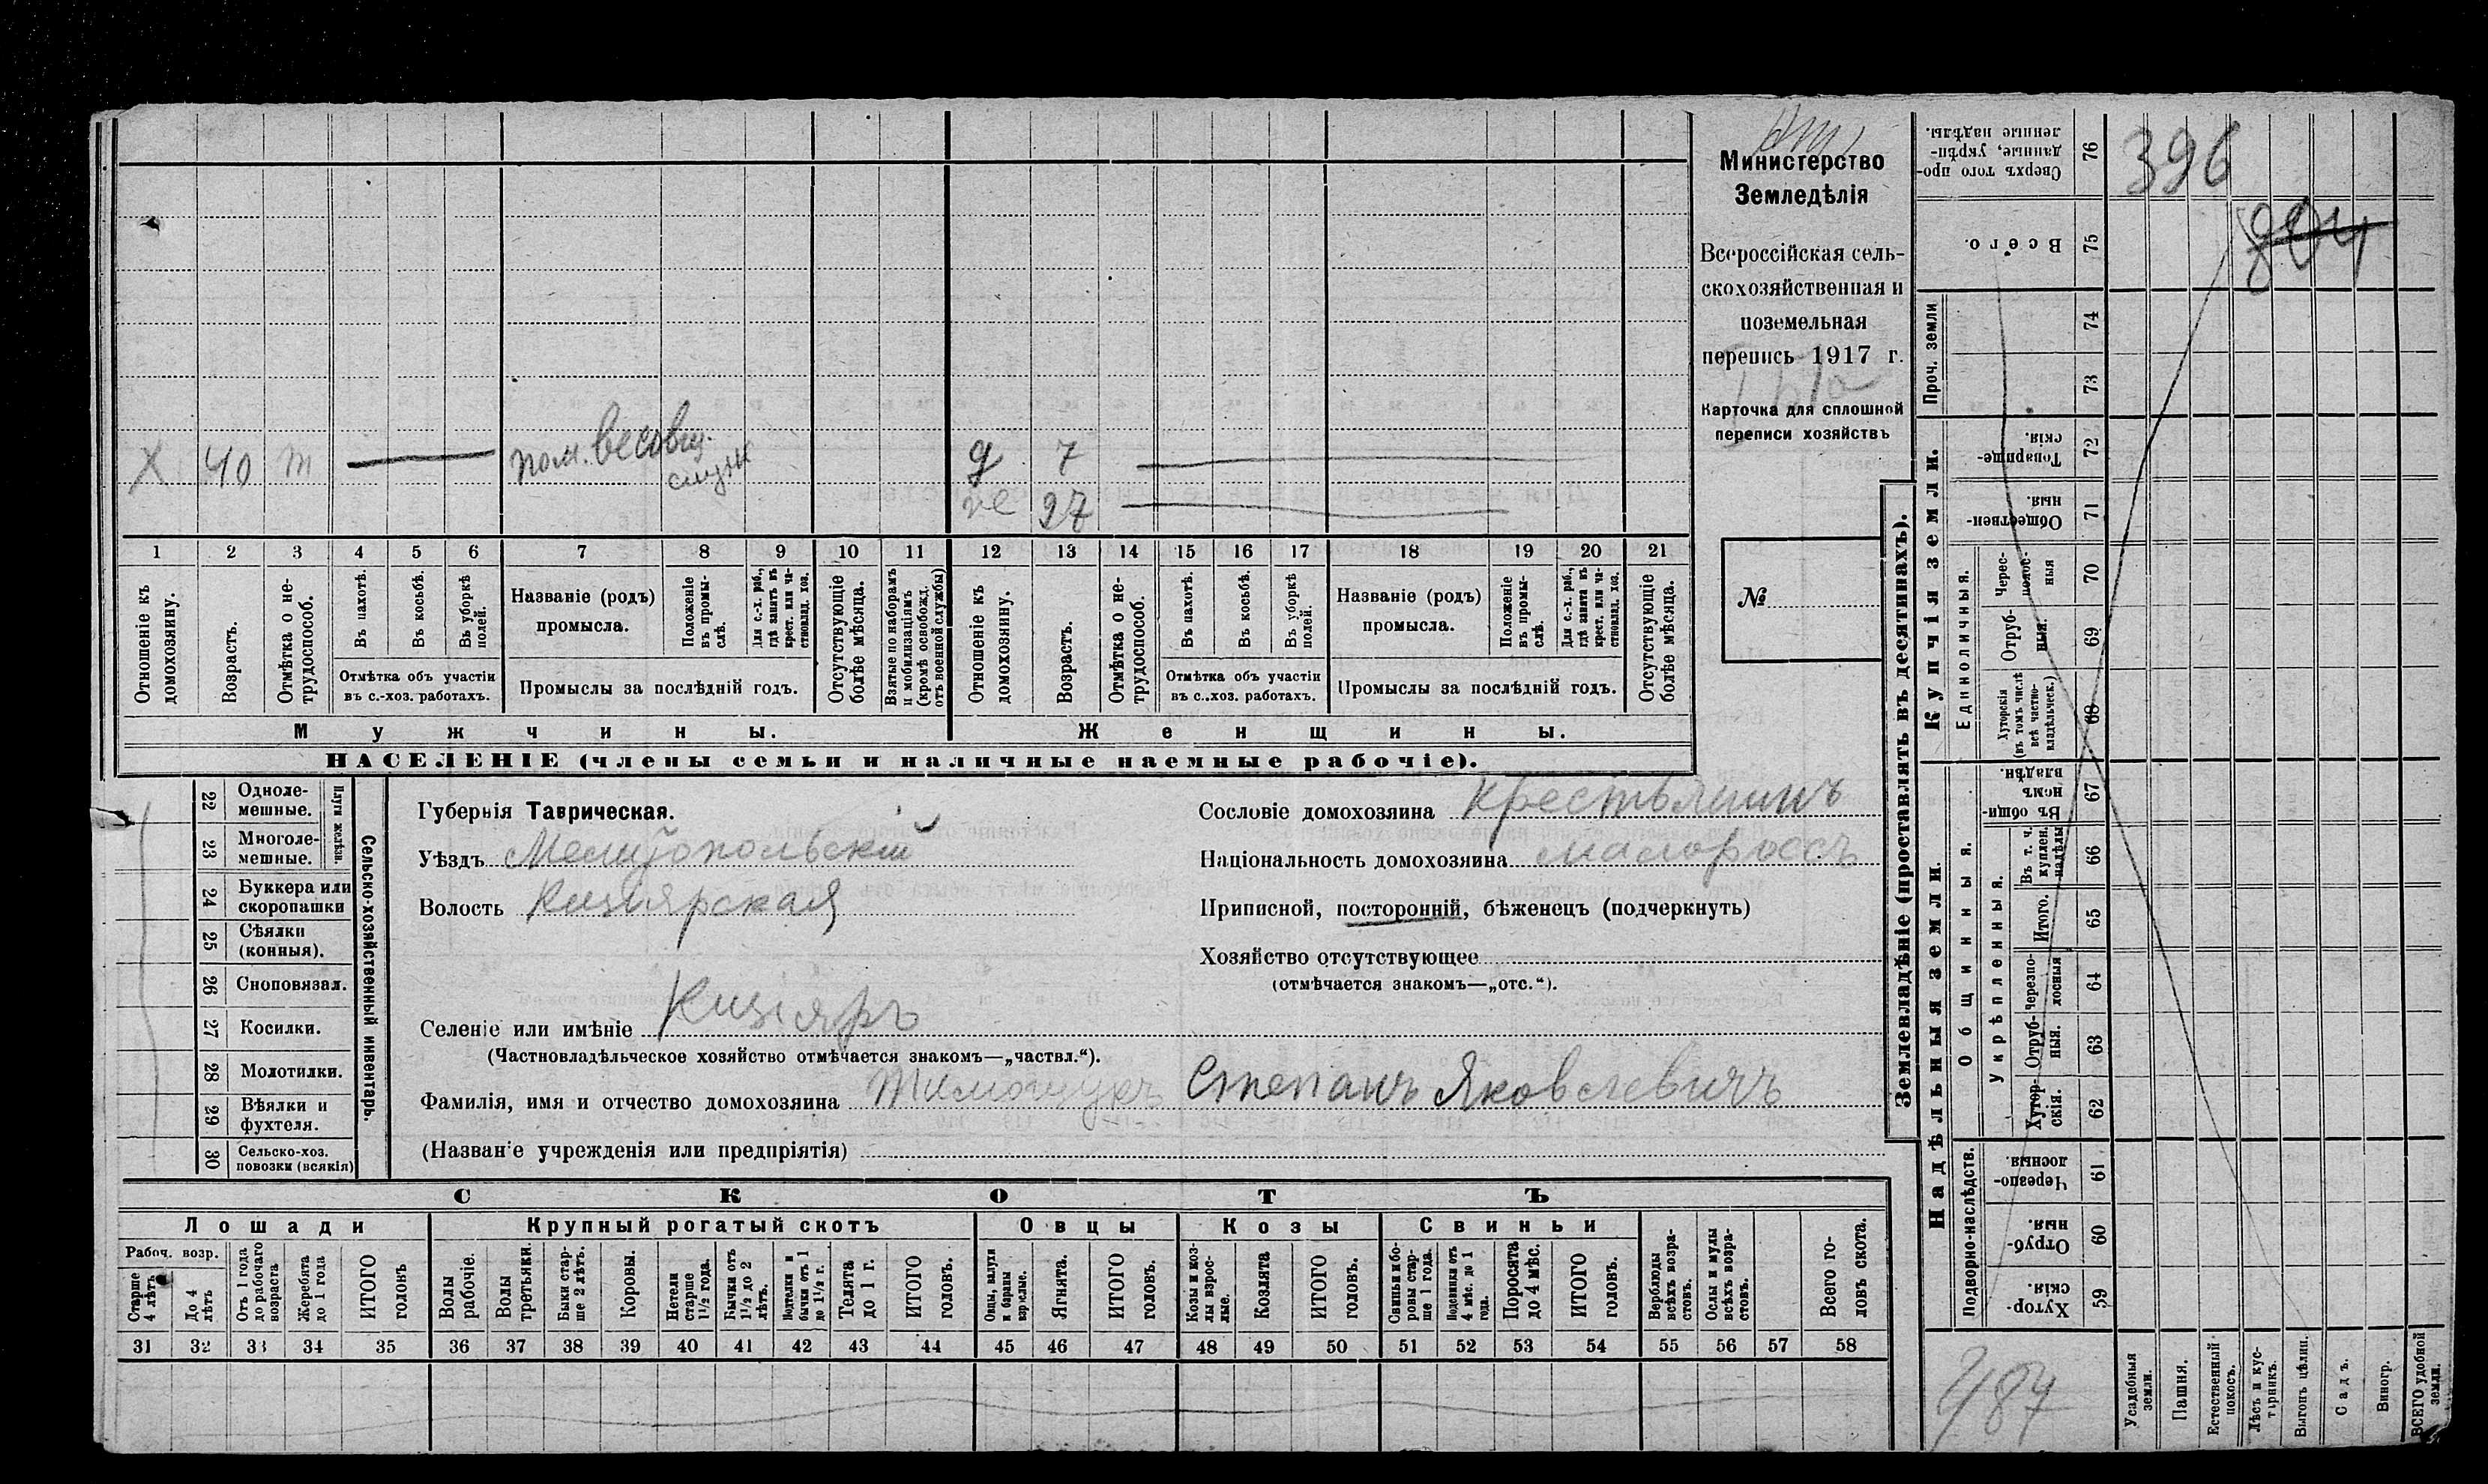 Министерство
Земледѣлія
Всероссійская сель-
скохозяйственная и
поземельная
перепись 1917 г.
Карточка для сплошной
переписи хозяйствъ
№
Х 40 пом. весовщ. служ
д 7
ж 27
1 2 3 4 5 6 7 8 9 10 11 12 13 14 15 16 17 18 19 20 21
Отношеніе къ домохозяину.
Возрастъ.
Отмѣтка о не-трудоспособ.
Въ пахотѣ.
Въ косьбѣ.
Въ уборкѣ полей.
Отмѣтка объ участіи
въ с.-хоз. работахъ.
Названіе (родъ)
промысла.
Положеніе въ промы-слѣ.
Для с.-х. раб., гдѣ занятъ въ крест. или ча-стновлад. хоз.
Промыслы за послѣдній годъ.
Отсутствующіе болѣе мѣсяца.
Взятые по наборамъ и мобилизаціямъ (кромѣ освобожд. отъ военной службы)
Отношеніе къ домохозяину.
Возрастъ.
Отмѣтка о не-трудоспособ.
Въ пахотѣ.
Въ косьбѣ.
Въ уборкѣ полей.
Отмѣтка объ участіи
въ с.-хоз. работахъ.
Названіе (родъ)
промысла.
Положеніе въ промы-слѣ.
Для с.-х. раб., гдѣ занята въ крест. или ча-стновлад. хоз.
Промыслы за послѣдній годъ.
Отсутствующіе болѣе мѣсяца.
Мужчины.
Женщины.
НАСЕЛЕНІЕ (члены семьи и наличные наемные рабочіе).
22 Одноле-мешные.
23 Многоле-мешные.
Плуги желѣзн.
24 Буккера или скоропашки
25 Сѣялки (конныя).
26 Сноповязал.
27 Косилки.
28 Молотилки.
29 Вѣялки и фухтеля.
30 Сельско-хоз. повозки (всякія)
Сельско-хозяйственный инвентарь.
Губернія Таврическая.
Уѣздъ Мелитопольскій
Волость Кизіярская
Селеніе или имѣніе Кизіяръ
(Частновладѣльческое хозяйство отмѣчается знакомъ—„частвл.“).
Фамилія, имя и отчество домохозяина Тимощукъ Степанъ Яковлевичъ
(Названіе учрежденія или предпріятія)
Сословіе домохозяина крестьянинъ
Національность домохозяина малороссъ
Приписной, посторонній, бѣженецъ (подчеркнуть)
Хозяйство отсутствующее
(отмѣчается знакомъ—„отс.“).
СКОТЪ
Лошади
Крупный рогатый скотъ
Овцы
Козы
Свиньи
Рабоч. возр.
Старше 4 лѣтъ
До 4 лѣтъ
Отъ 1 года до рабочаго возраста
Жеребята до 1 года
ИТОГО головъ
Волы рабочіе.
Волы третьяки.
Быки стар-ше 2 лѣтъ.
Коровы.
Нетели старше 1½ года.
Бычки отъ 1½ до 2 лѣтъ.
Подтелки и бычки отъ 1 до 1½ г.
Телята до 1 г.
ИТОГО головъ.
Овцы, валухи и бараны взрослые.
Ягнята.
ИТОГО головъ.
Козы и коз-лы взрос-лые.
Козлята
ИТОГО головъ.
Свиньи и бо-ровы стар-ше 1 года.
Подсвинки отъ 4 мѣс. до 1 года.
Поросята до 4 мѣс.
ИТОГО головъ.
Верблюды всѣхъ возра-стовъ.
Ослы и мулы всѣхъ возра-стовъ.
Всего го-ловъ скота.
31 32 33 34 35 36 37 38 39 40 41 42 43 44 45 46 47 48 49 50 51 52 53 54 55 56 57 58
Землевладѣніе (проставлять въ десятинахъ).
Купчія земли.
Надѣльныя земли.
Проч. земли
Единоличныя.
Общинныя.
Укрѣпленныя.
Подворно-наслѣдств.
Сверхъ того про-данные, укрѣп-ленные надѣлы. 76
Всего. 75
74
73
Товарище-скія. 72
Обществен-ныя 71
Черес-полос-ныя 70
Отруб-ныя. 69
Хуторскія (въ томъ числѣ всѣ частно-владѣльческ.) 68
Въ общи-номъ владѣн. 67
Въ т. ч. куплен. надѣлы 66
Итого. 65
Черезпо-лосныя 64
Отруб-ныя. 63
Хутор-скія. 62
Черезпо-лосныя. 61
Отруб-ныя. 60
Хутор-скія. 59
Усадебныя земли.
Пашня.
Естественный покосъ.
Лѣсъ и кус-тарникъ.
Выгонъ цѣлин.
Садъ.
Виногр.
ВСЕГО удобной земли.
396
487